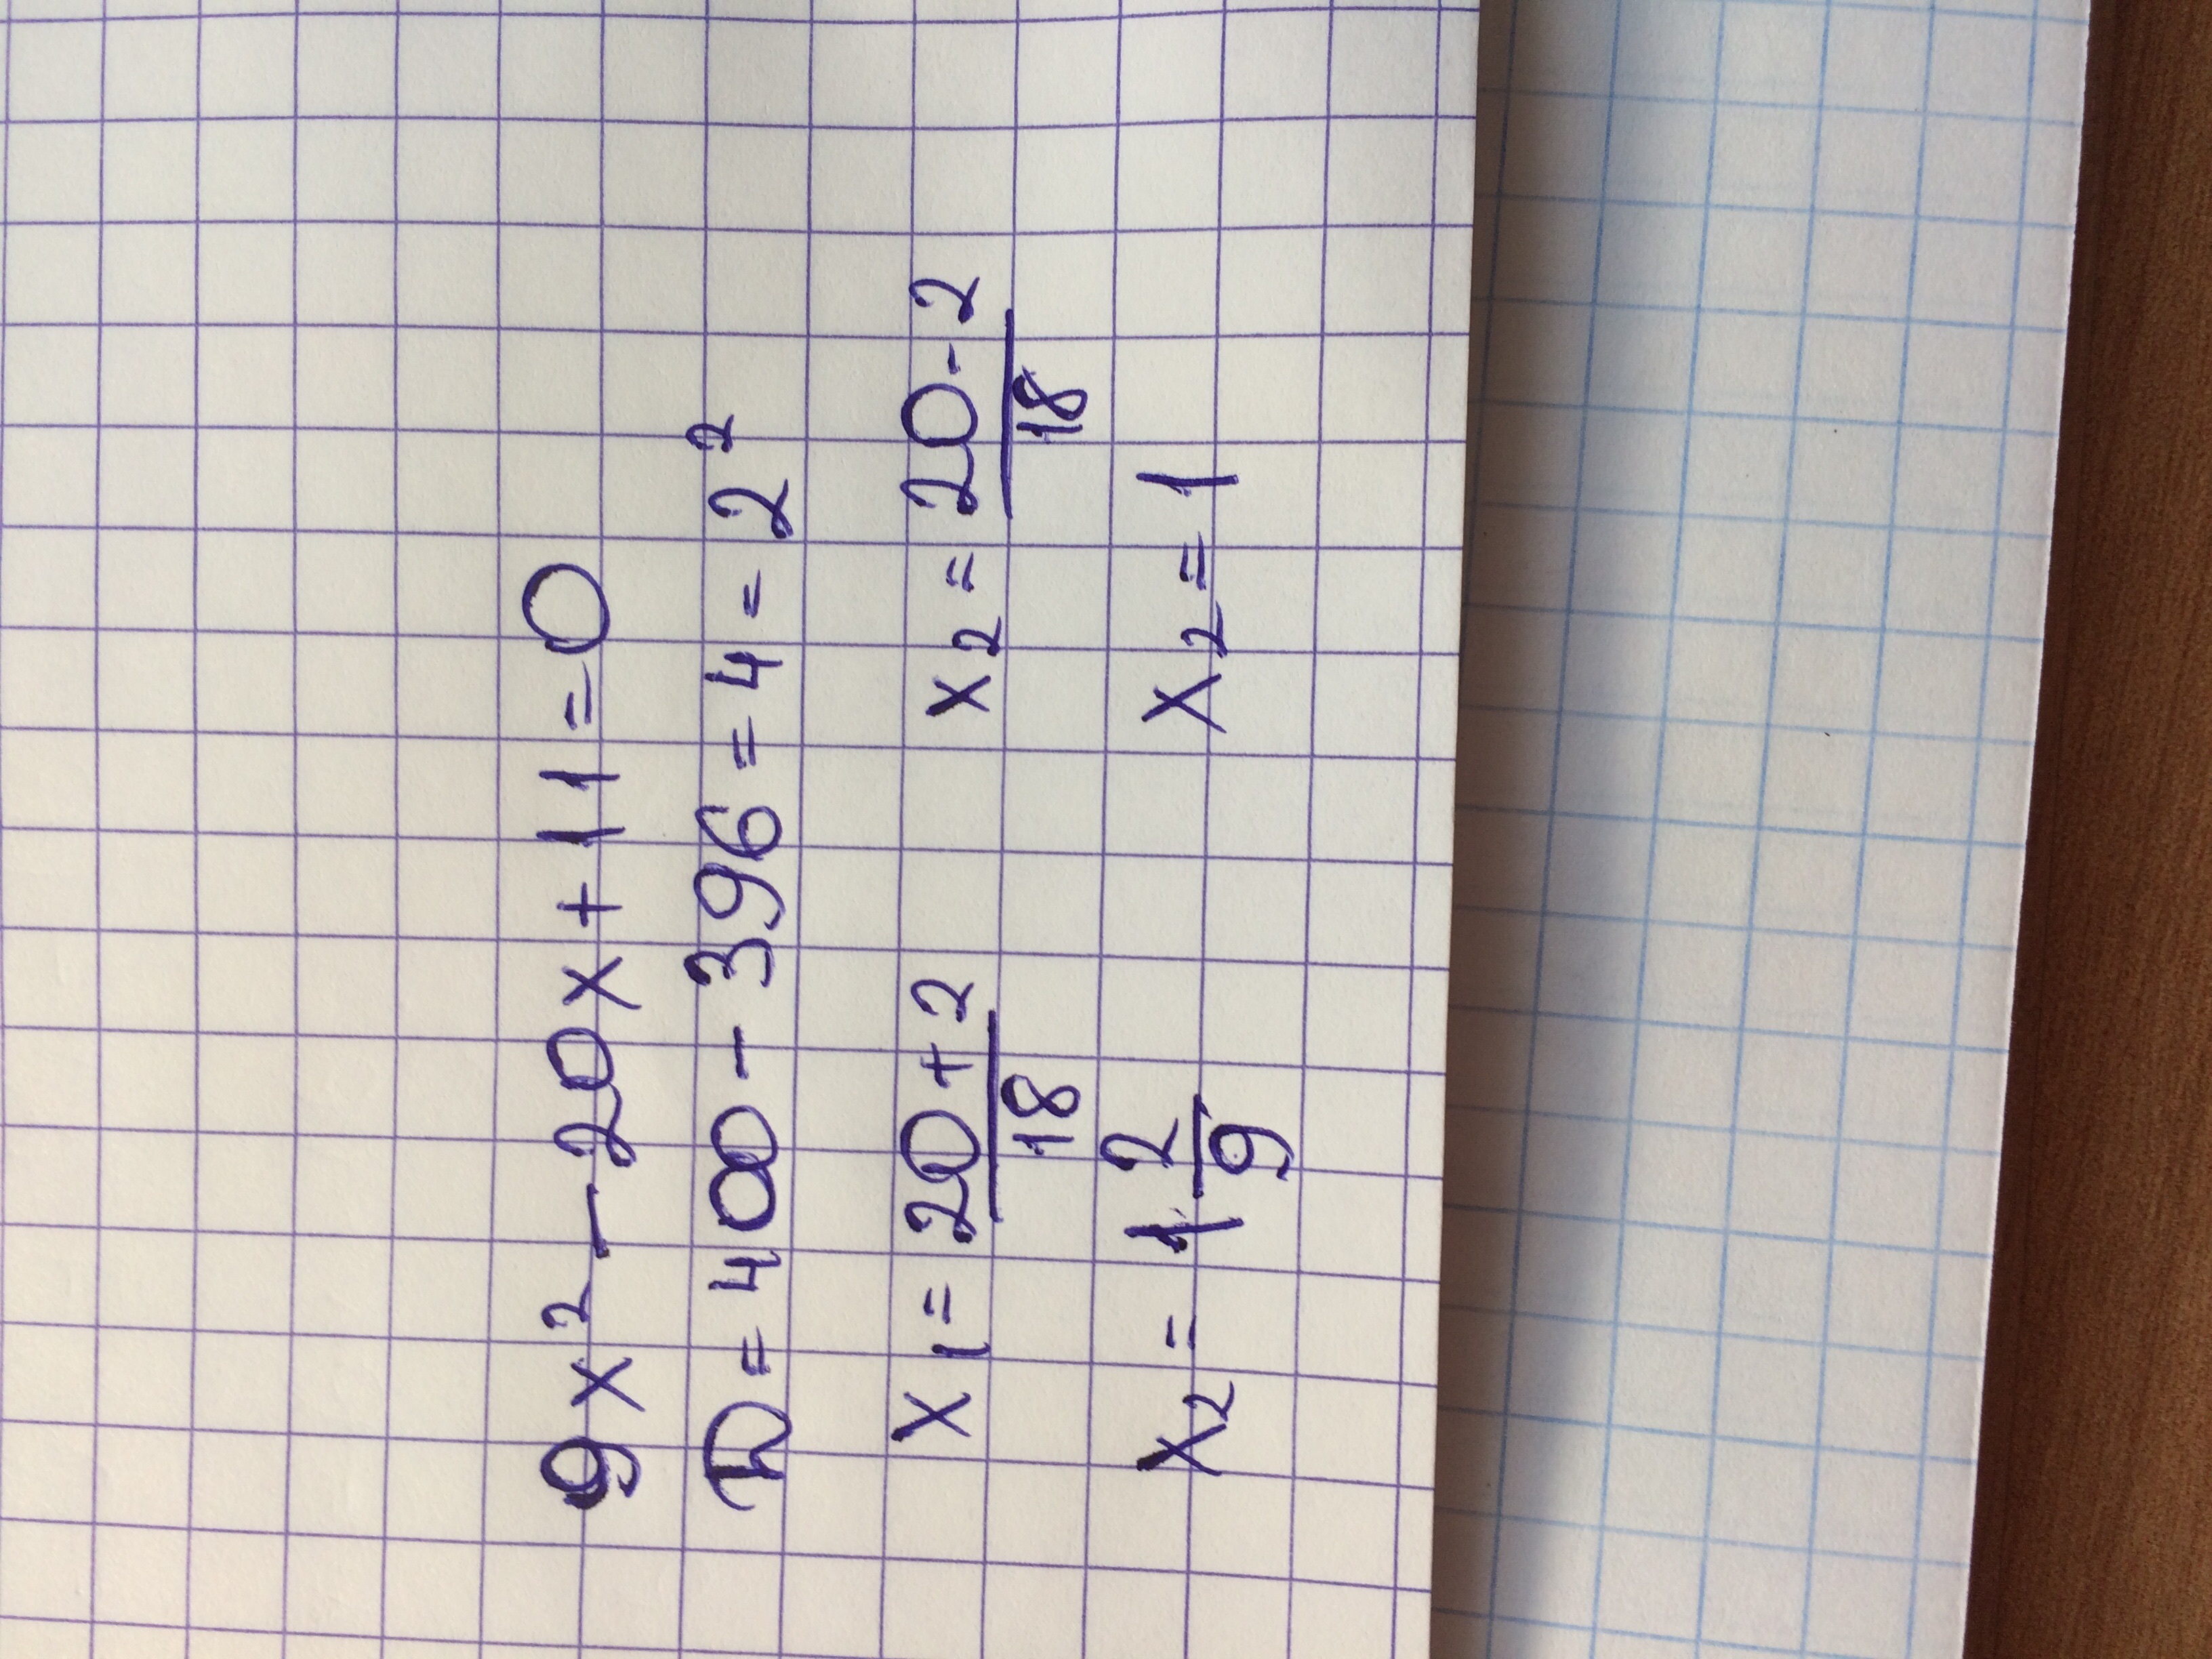 9x² - 20x + 11 = 0
D = 400 - 396 = 4 = 2²
x₁ = (20 + 2)/18    x₂ = (20 - 2)/18
x₂ = 1 2/9    x₂ = 1